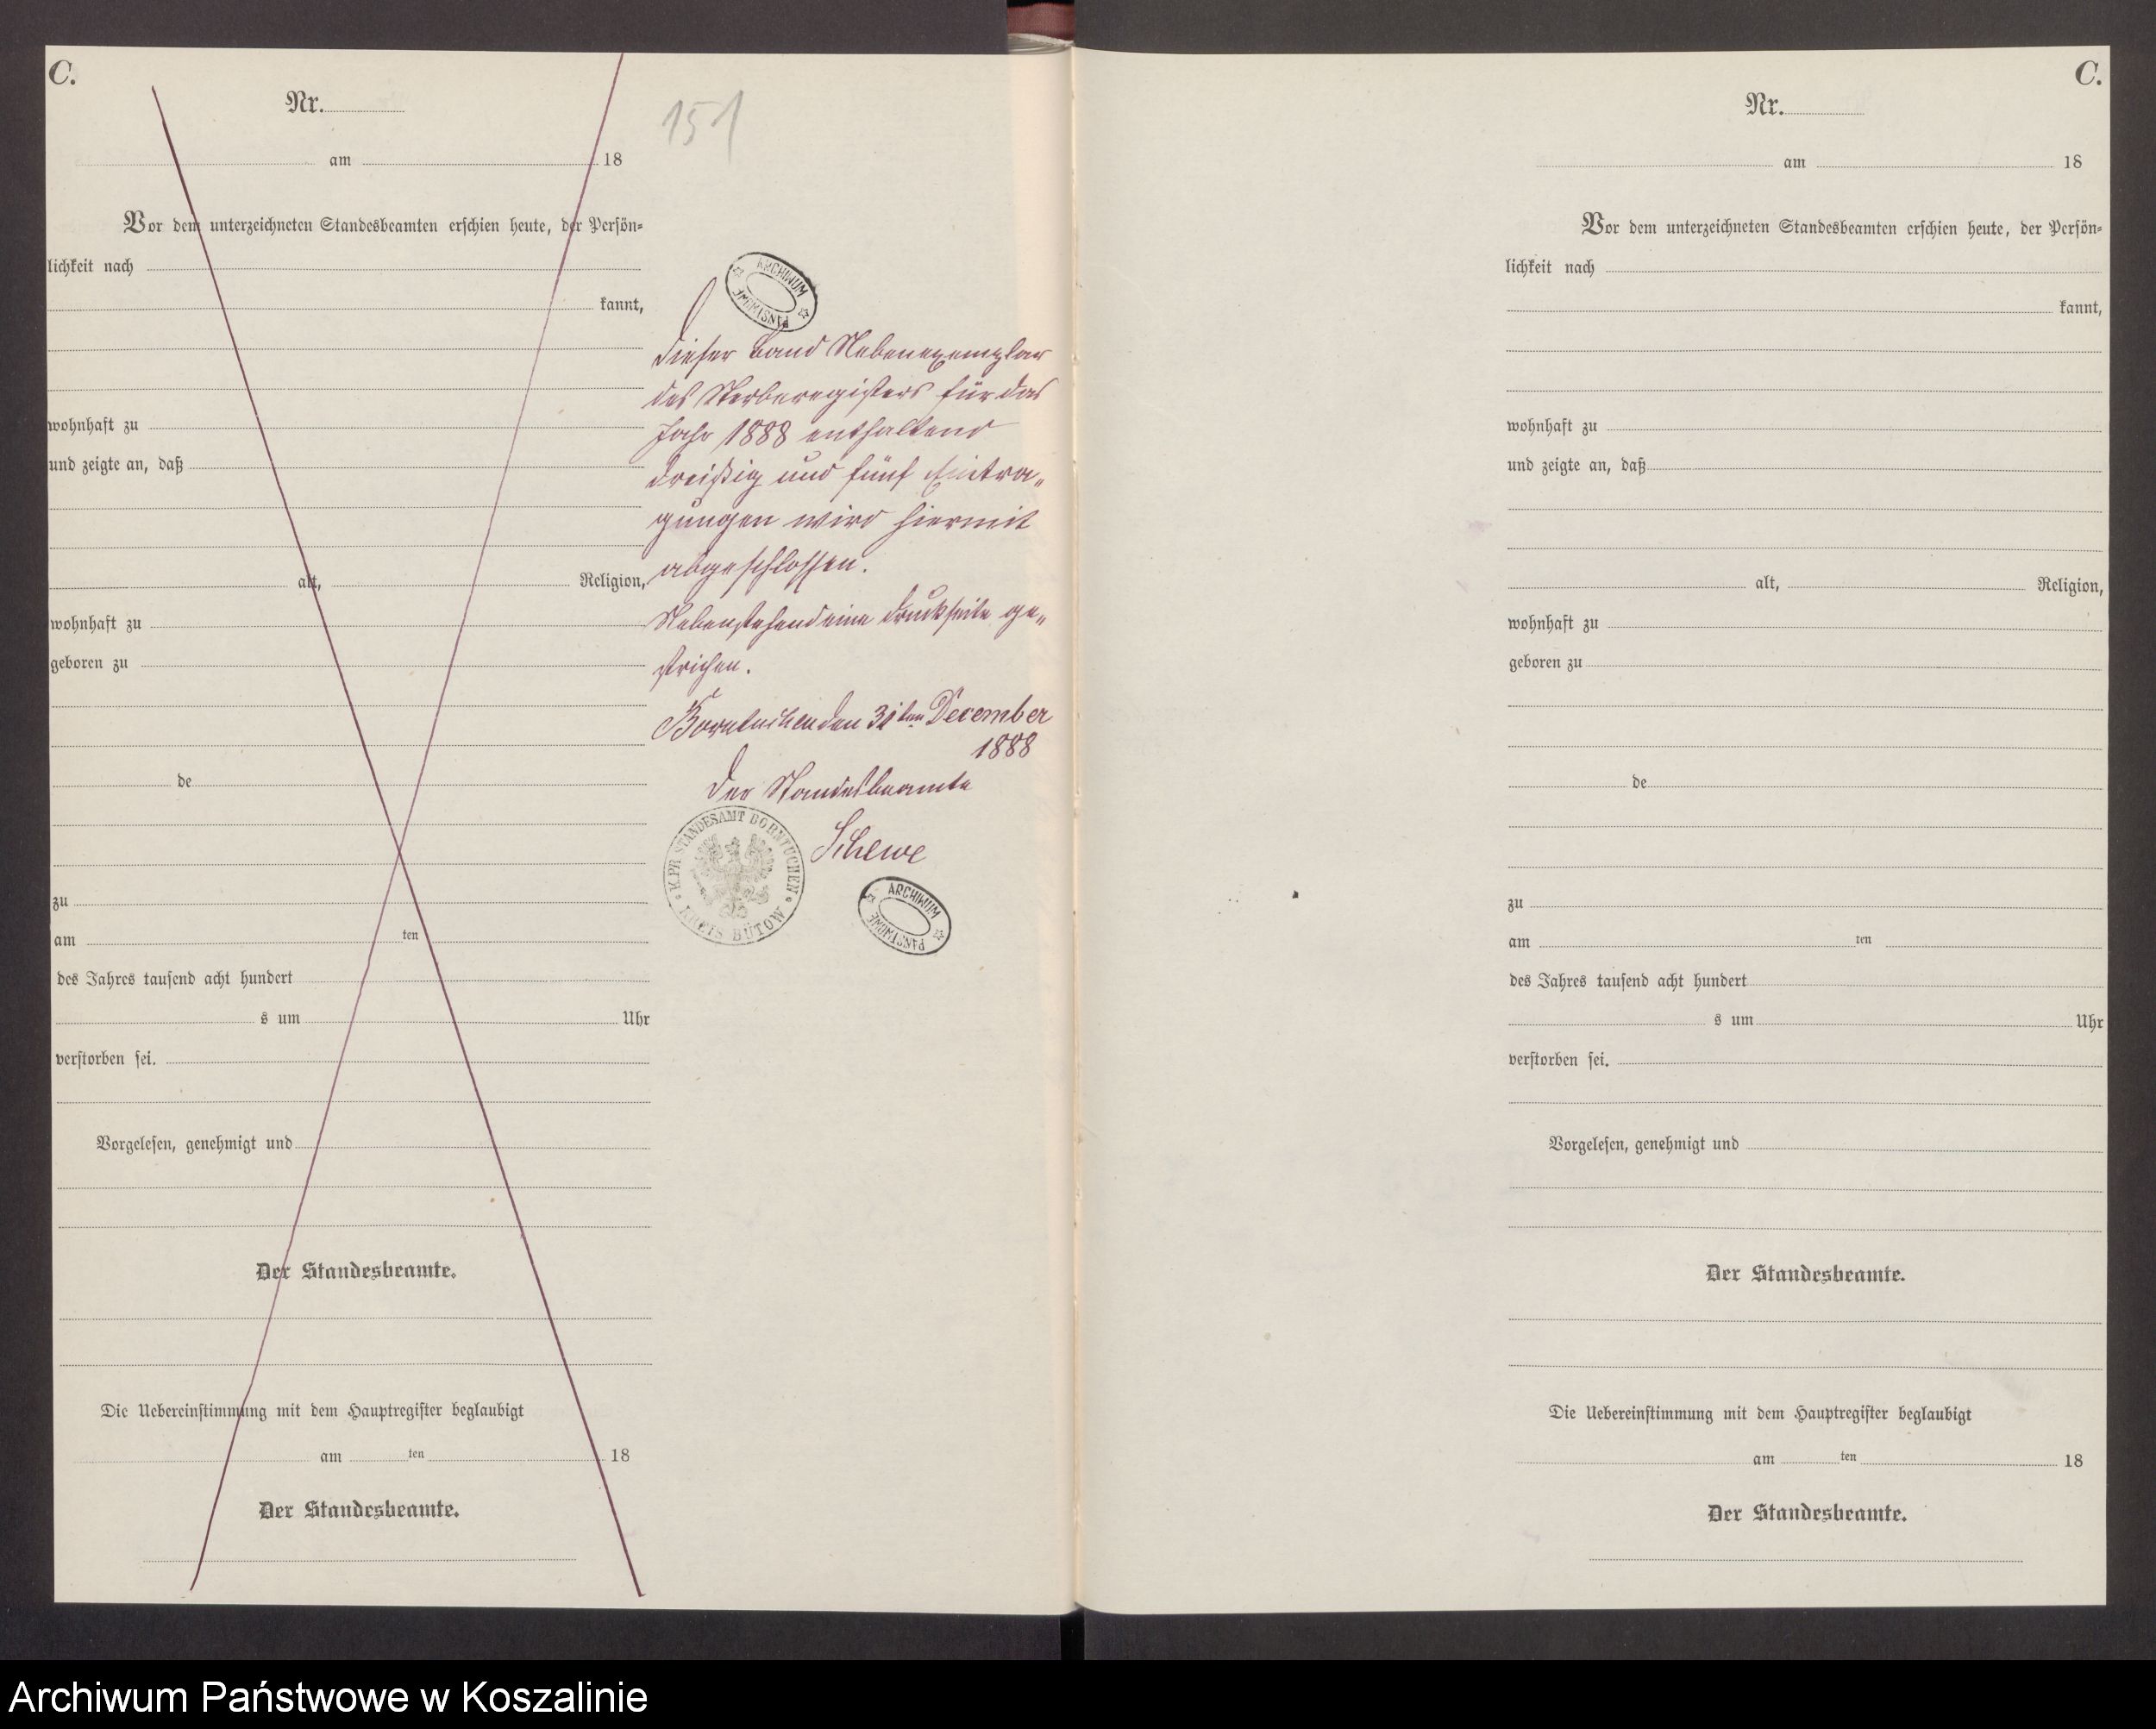 C.
Nr.
151
am 18
Vor dem unterzeichneten Standesbeamten erschien heute, der Persön-
lichkeit nach
kannt,
wohnhaft zu
und zeigte an, daß
alt, Religion,
wohnhaft zu
geboren zu
de
zu
am ten
des Jahres tausend acht hundert
s um Uhr
verstorben sei.
Vorgelesen, genehmigt und
Der Standesbeamte.
Die Uebereinstimmung mit dem Hauptregister beglaubigt
am ten 18
Der Standesbeamte.
ARCHIWUM PAŃSTWOWE
Dieser Band Nebenexemplar
des Sterberegisters für das
Jahr 1888 enthaltend
dreißig und fünf Eintra„
gungen wird hiermit
abgeschlossen.
Nebenstehend eine Druckseite ge„
strichen.
Borntuchen den 31ten December
1888
Der Standesbeamte
Schewe
K. PR. STANDESAMT BORNTUCHEN
KREIS BÜTOW
ARCHIWUM PAŃSTWOWE
C.
Nr.
am 18
Vor dem unterzeichneten Standesbeamten erschien heute, der Persön-
lichkeit nach
kannt,
wohnhaft zu
und zeigte an, daß
alt, Religion,
wohnhaft zu
geboren zu
de
zu
am ten
des Jahres tausend acht hundert
s um Uhr
verstorben sei.
Vorgelesen, genehmigt und
Der Standesbeamte.
Die Uebereinstimmung mit dem Hauptregister beglaubigt
am ten 18
Der Standesbeamte.
Archiwum Państwowe w Koszalinie